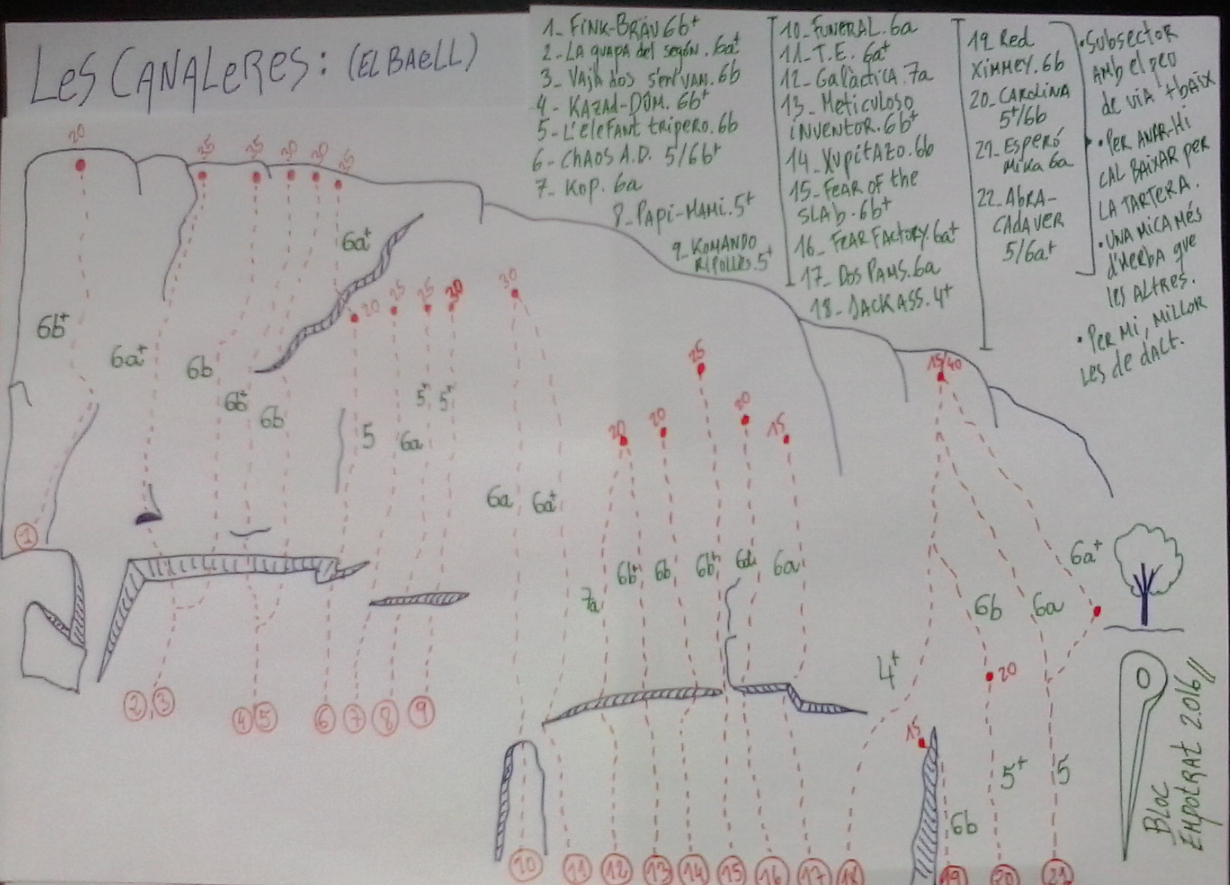 LES CANALERES: (EL BAELL)
1- FINK-BRÄU 6b+
2- LA guapa del segon. 6a+
3- VAJA dos s'en van. 6b
4- KAZAD-DÛM. 6b+
5- L'elefant tripero. 6b
6- CHAOS A.D. 5/6b+
7- KOP. 6a
8- PAPI-MAMI. 5+
9- KOMANDO
RIPOLLÈS. 5+
10- FUNERAL. 6a
11- T.E. 6a+
12- Galàctica. 7a
13- Meticuloso
inventor. 6b+
14- Xupitazo. 6b
15- Fear of the
SLAb. 6b+
16- FEAR FACTORY. 6a+
17- DOS PAMS. 6a
18- JACKASS. 4+
19- Red
XIMMEY. 6b
20- CAROLINA
5+/6b
21- ESPERÓ
Mika 6a
22- ABRA-
CADAVER
5/6a+
• SUBSECTOR
AMB el peo
de via + baix
• PER ANAR-HI
CAL BAIXAR PER
LA TARTERA.
• UNA MICA MÉS
d'HERBA QUE
les ALTRES.
• PER MI, MILLOR
LES de dALT.
20
25
35
30
30
25
6a+
6b+
6a+
6b
6b+
6b
20
25
25
30
30
5
6a
5+
5+
6a
6a+
20
20
25
20
15
15/40
7a
6b+
6b
6b+
6a
6b
6a
6a+
4+
20
15
5+
5
6b
1
2,3
4
5
6
7
8
9
10
11
12
13
14
15
16
17
18
19
20
21
BLOC
EMPOTRAT 2.016//